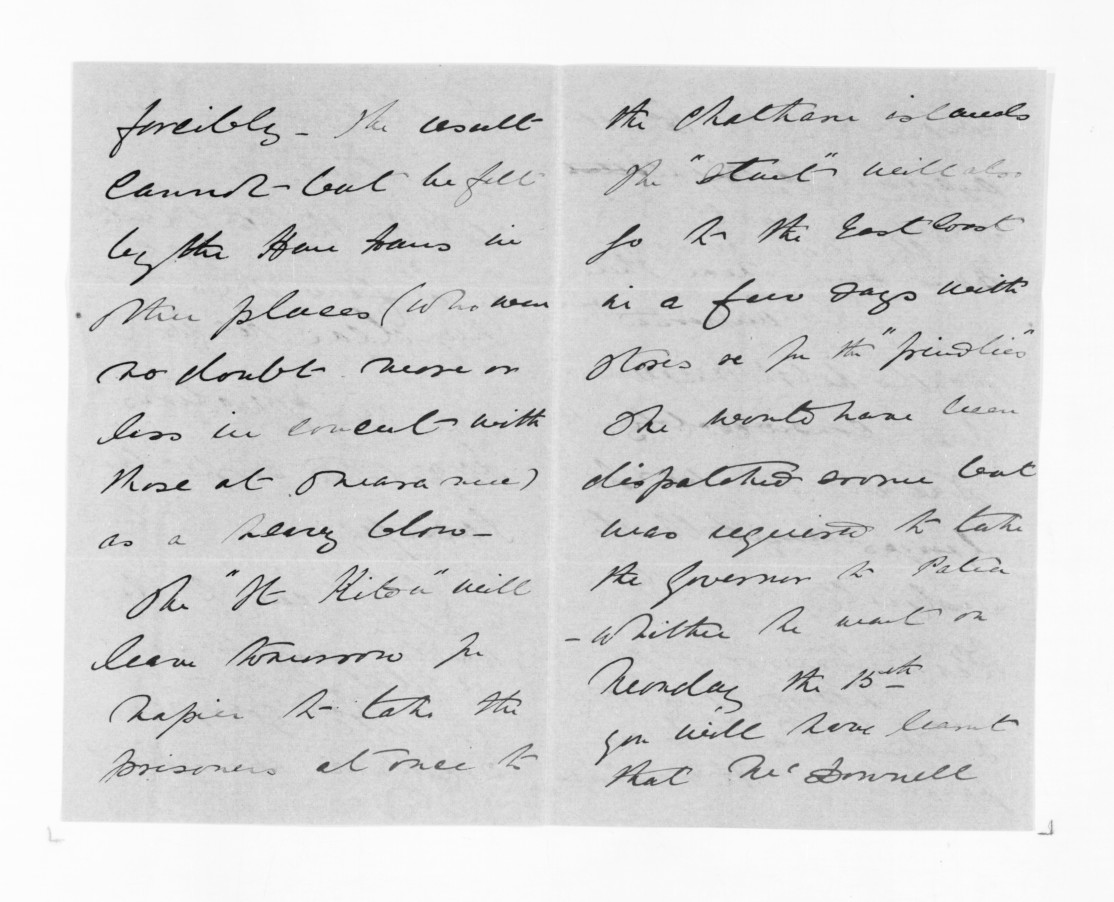 forcibly - The result
cannot but be felt
by the Hau haus in
other places (who were
no doubt more or
less in concert with
those at Omaranui)
as a heavy blow -
The "St Kilda" will
leave tomorrow for
Napier to take the
prisoners at once to
the Chatham islands
The "Sturt" will also
go to the East Coast
in a few days with
stores &c for the "friendlies"
She would have been
dispatched sooner but
was required to take
the Governor to Patea
- whither he went on
Monday the 15th
you will have learnt
that McDonnell